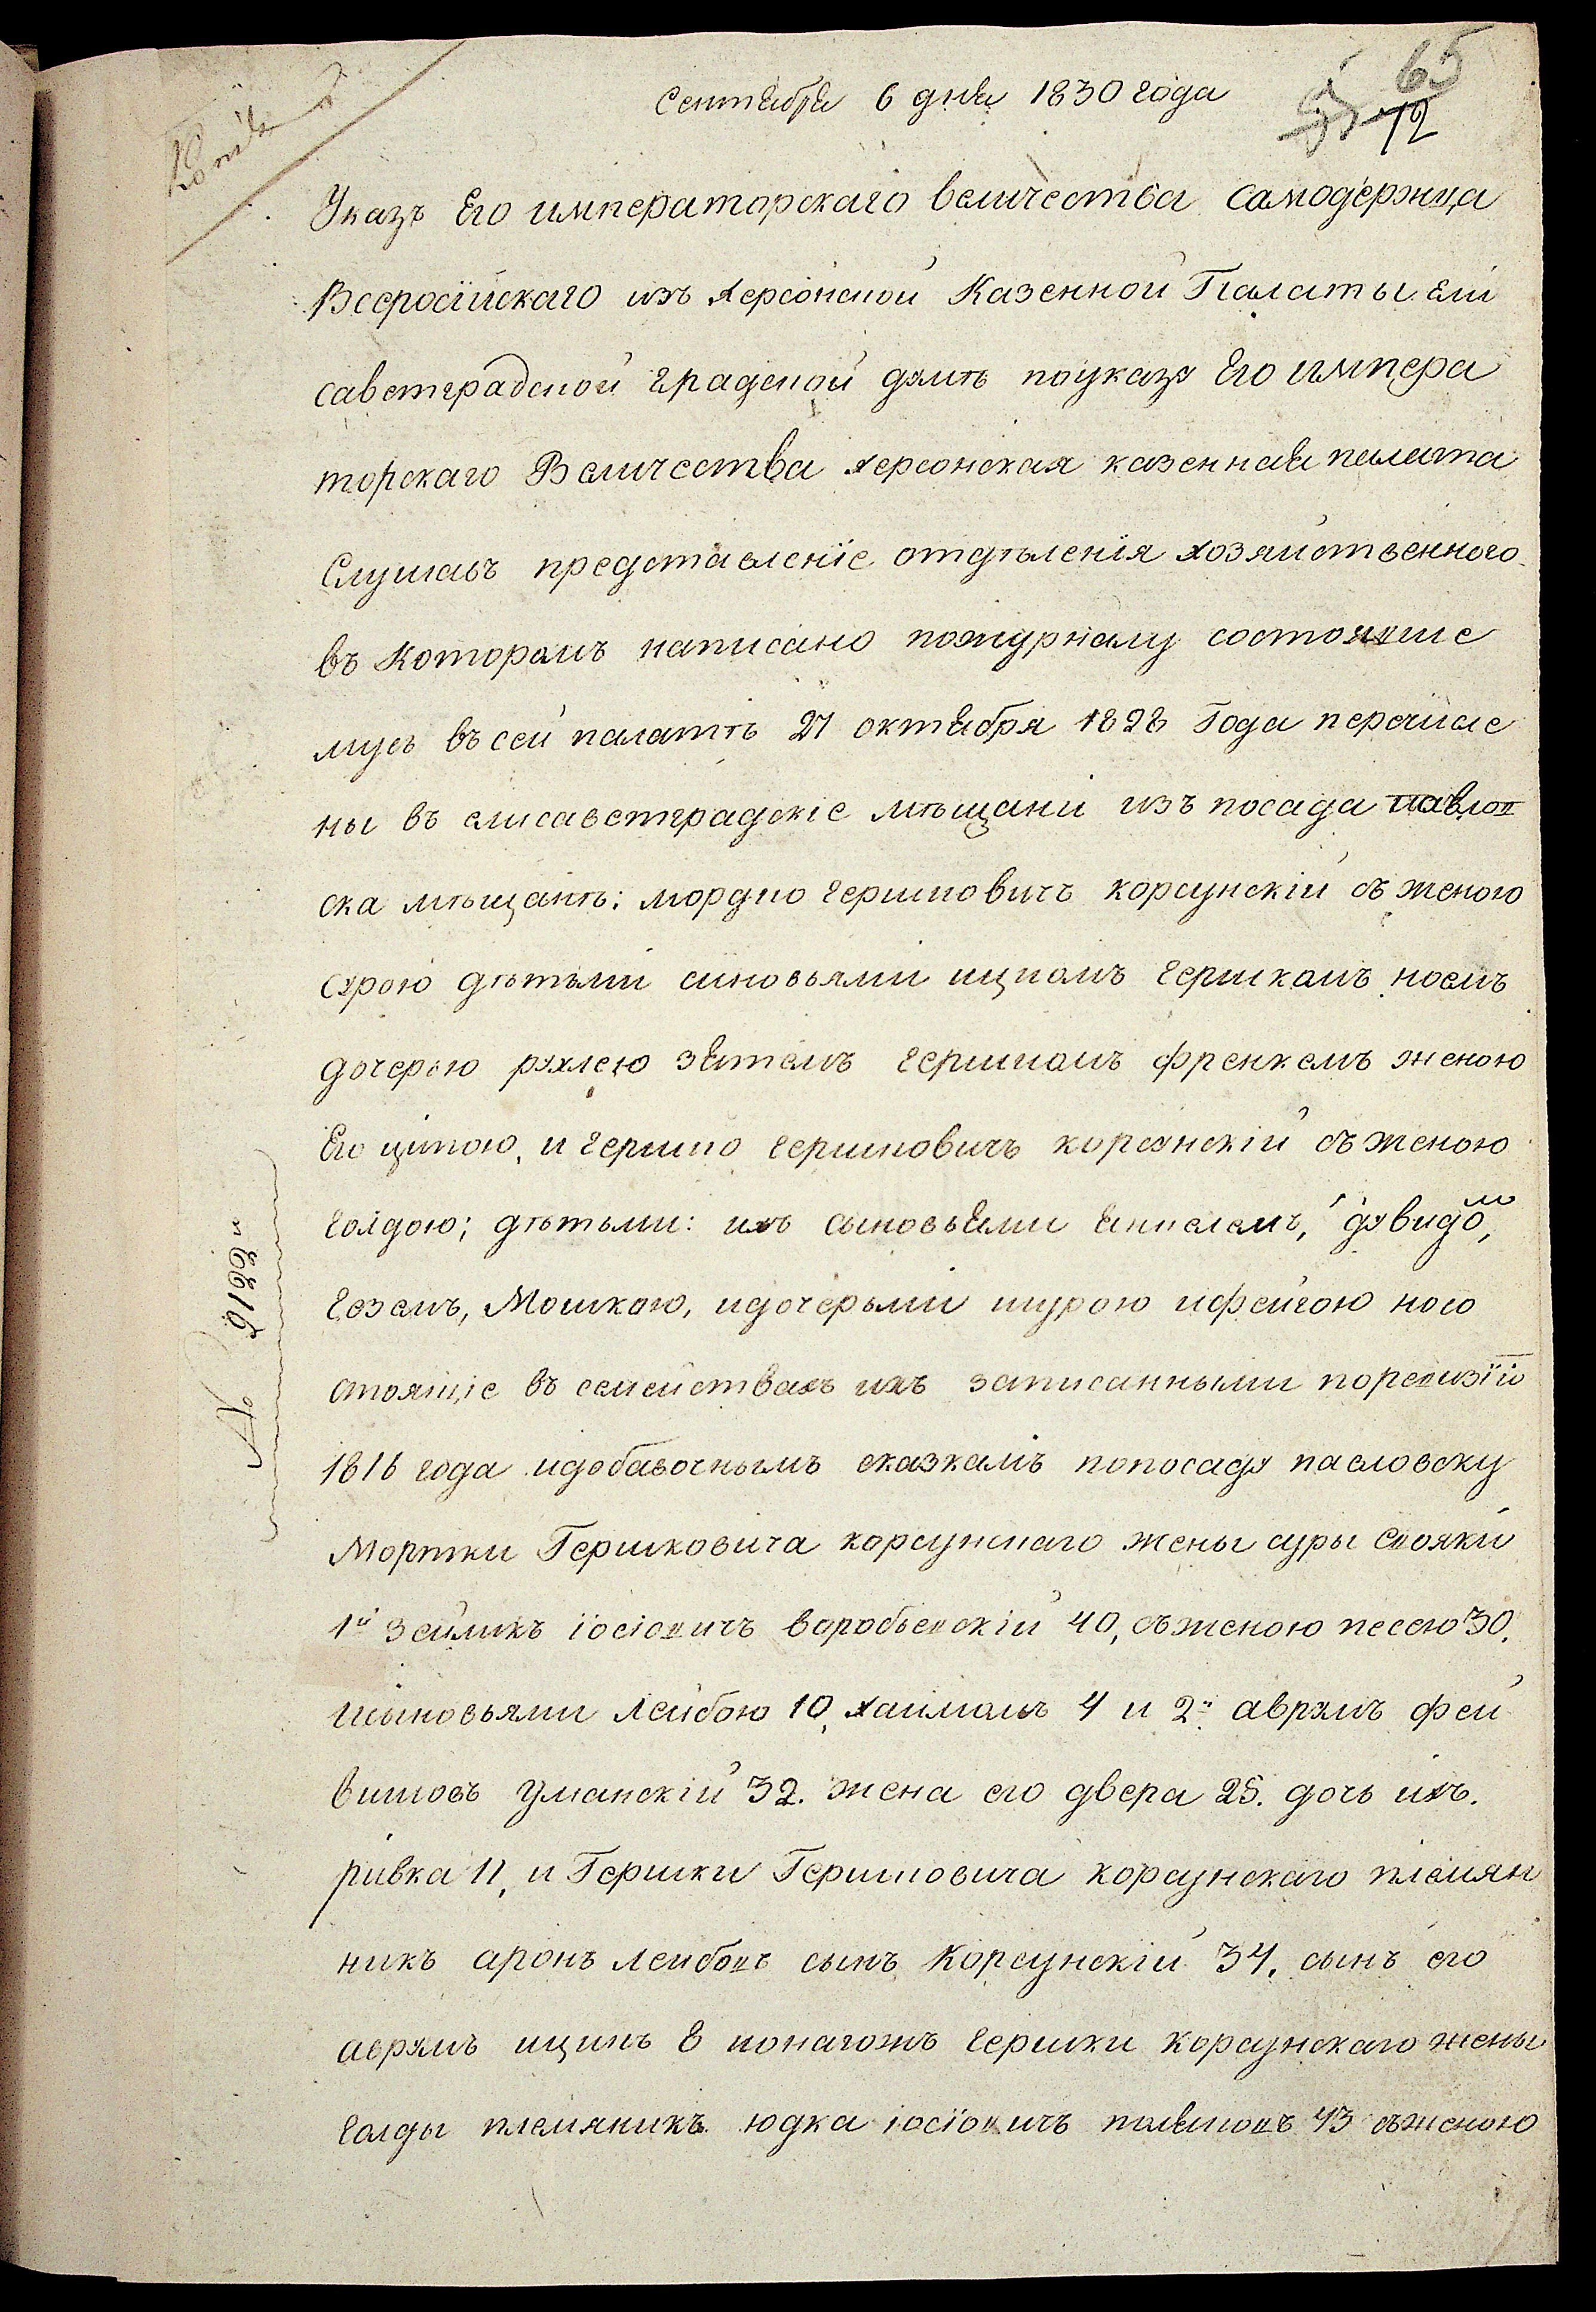 Копія
65
12
Сентября 6 дня 1830 года
Указъ Его императорскаго величества самодержца
Всеросiйскаго изъ херсонской Казенной Палаты ели
саветградской градской думѣ поуказу Его импера
торскаго Величества херсонская казенная палата
Слушавъ представленіе отдѣленія хозяйственного
въ которомъ написано пожурналу состоявше
муся въ сей палатѣ 27 октября 1828 Года перечисле
ны въ елисаветградскіе мѣщани изъ посада павлов
ска мѣщанѣ: мордко гершковичъ корсунскій съ женою
сурою дѣтьми синовьями ицкомъ гершкомъ ноемъ
дочерью рухлею зятемъ гершкомъ френкемъ женою
Его ципою, и гершко гершковичъ корсунскій съ женою
голдою; дѣтьми: ихъ сыновьями янкелемъ, дувидомъ,
геземъ, Мошкою, идочерьми шурою ифейгою носо
стоящіе въ семействахъ ихъ записанными поревизіи
1816 года идобавочнымъ сказкамъ попосаду павловску
Мортки Гершковича корсунскаго жены суры свояки
1й Зейликъ іосіовичъ воробьевскій 40, съженою песею 30.
исыновьями Лейбою 10, хаимомъ 4 и 2й аврумъ фей
вишовъ Уманскій 32. жена его двера 25. дочь ихъ.
ривка 11, и Гершки Гершковича корсунскаго племян
никъ аронъ лейбовъ сынъ Корсунскій 34. сынъ его
аврумъ ицикъ 8 ионагожъ гершки корсунскаго жены
голды племяникъ юдка іосіовичъ 43 съженою
№ 9199й